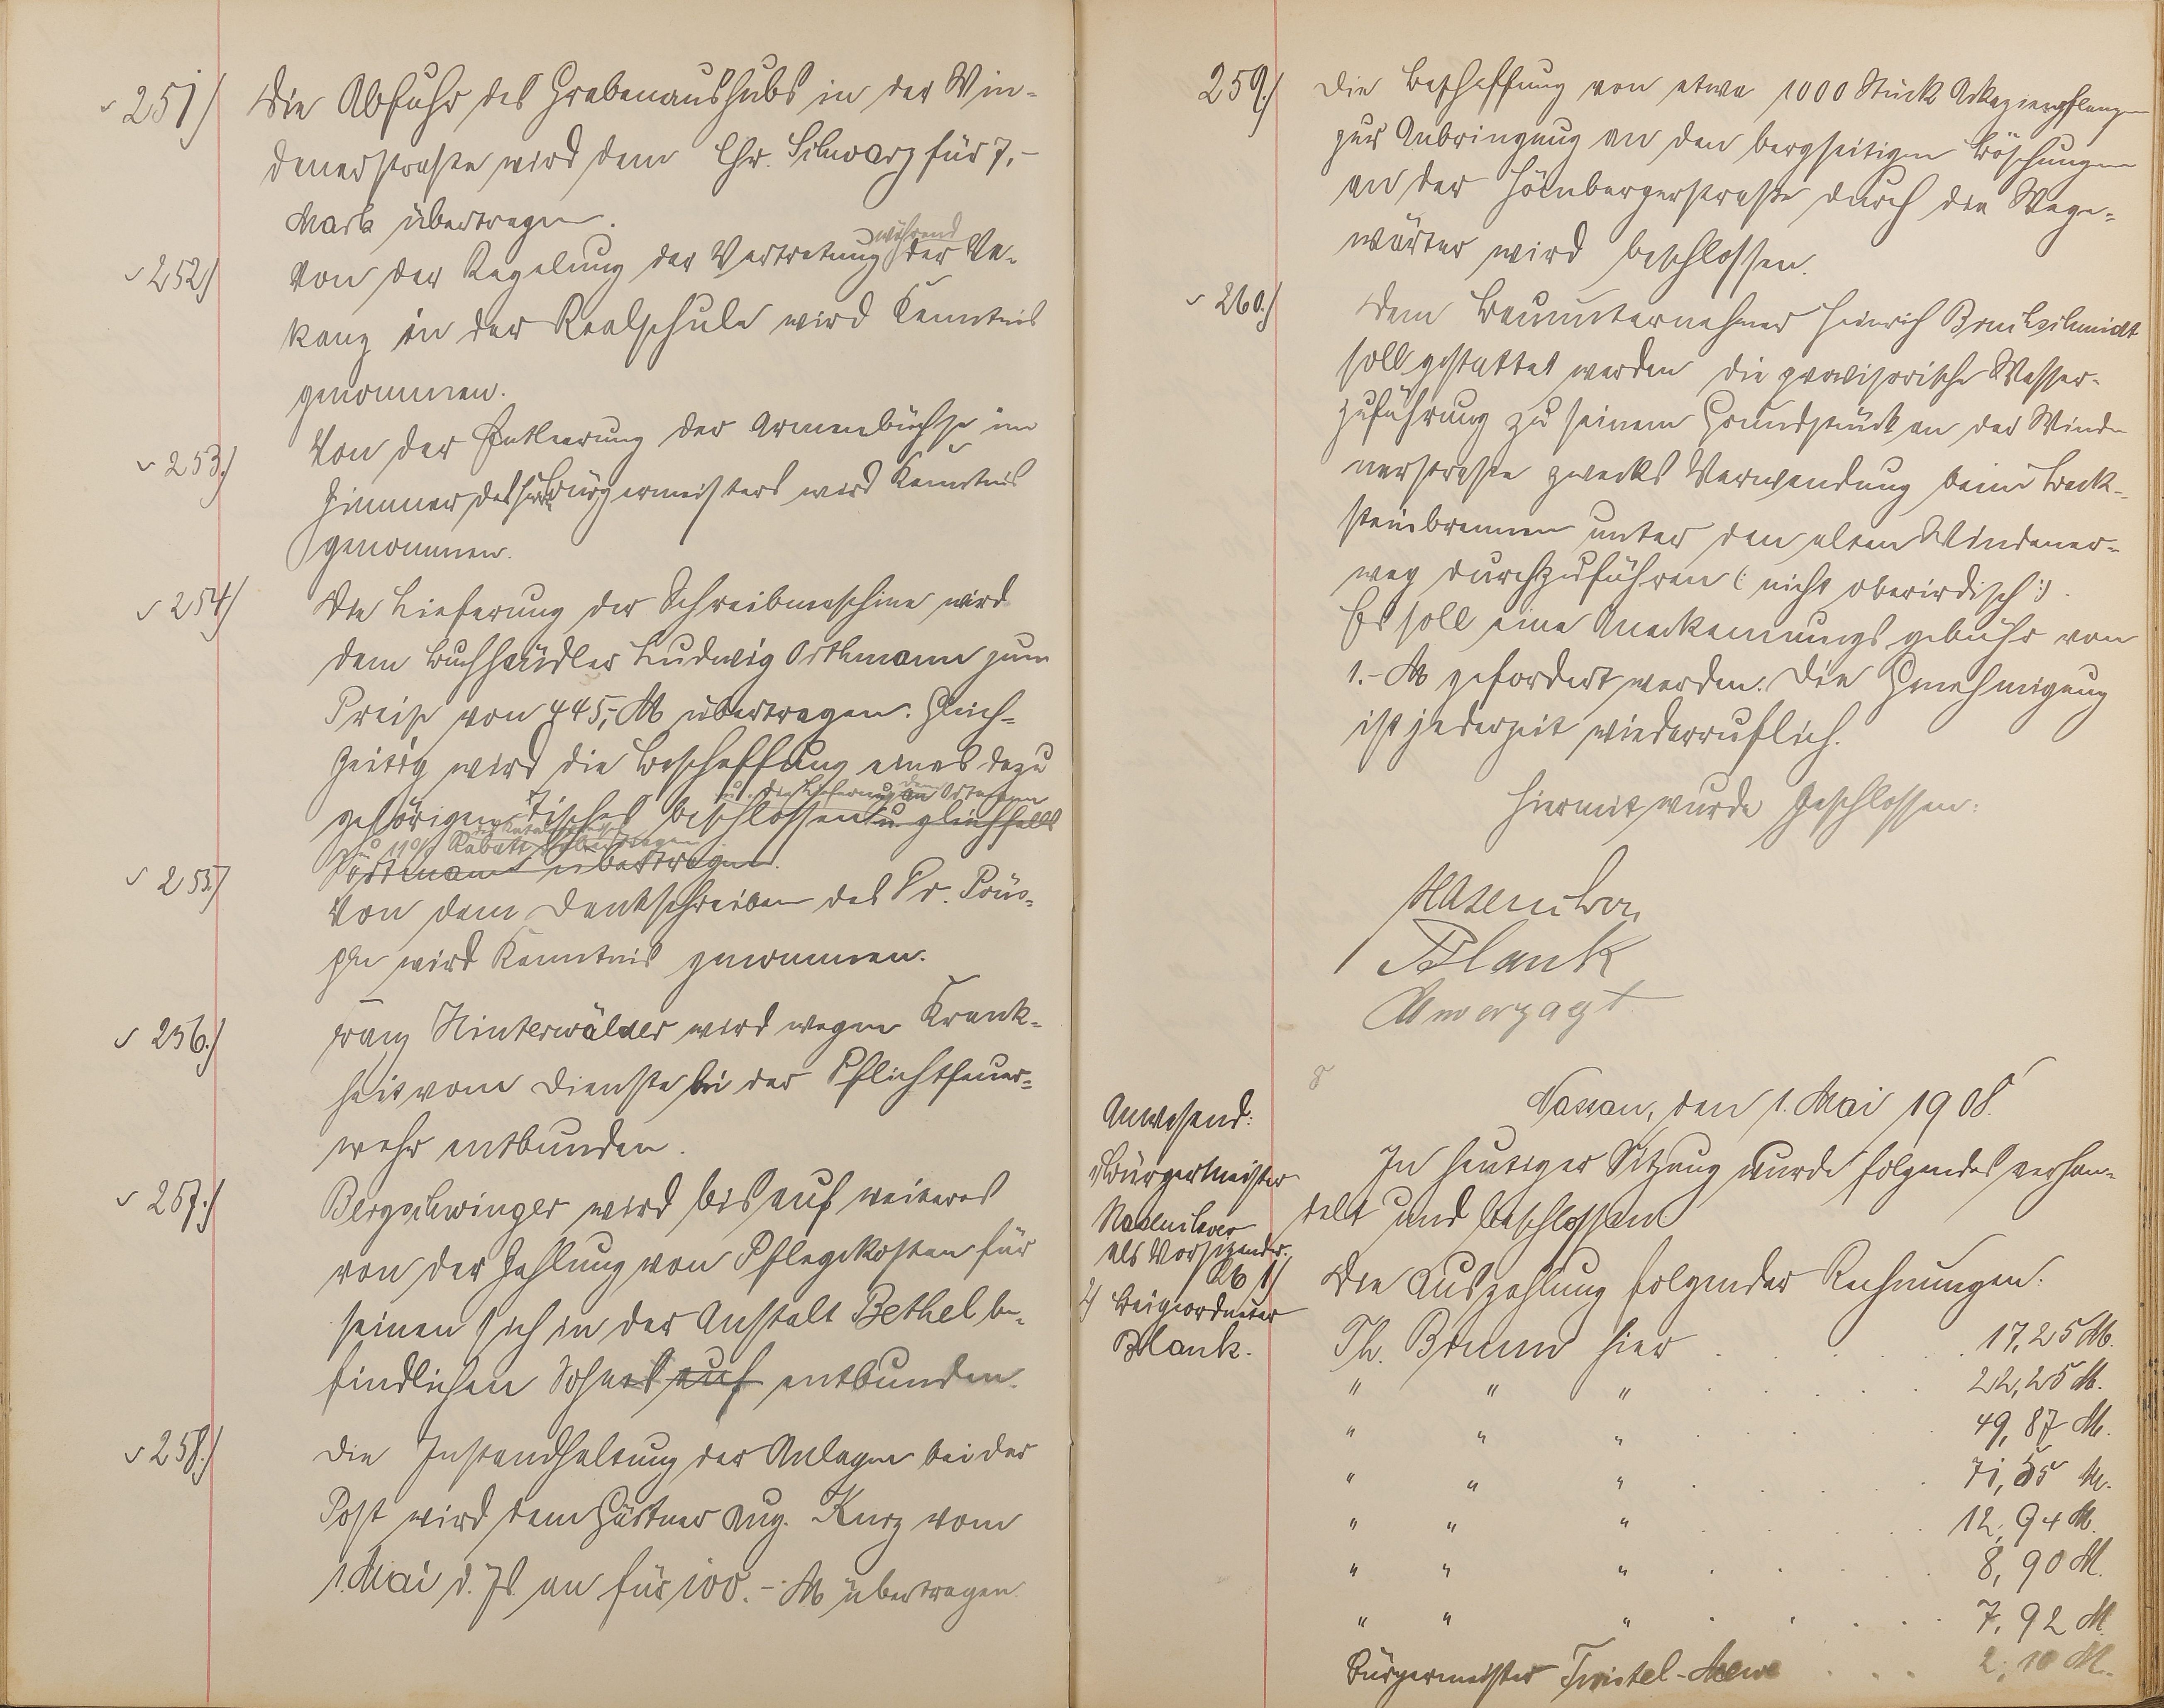 251) Die Abfuhr des Grabenaushubs in der Win-
denerstraße wird dem Chr. Schwarz für 7,-
Mark übertragen.
252) Von der Regelung der Vertretung während der Va-
kanz in der Realschule wird Kenntnis
genommen.
253.) Von der Entleerung der Armenbüchse im
Zimmer des Herrn Bürgermeisters wird Kenntnis
genommen.
254) Die Lieferung der Schreibmaschine wird
dem Buchhändler Ludwig Orthmann zum
Preise von 445,- M übertragen. Gleich-
zeitig wird die Beschaffung eines dazu
gehörigen Tisches beschlossen u. gleichfalls
u. die Lieferung dem Ortmann
zu 11% Rabatt übertragen
Ortmann übertragen.
255) Von dem Dankschreiben des Dr.
wird Kenntnis genommen.
256.) Franz Hinterwälder wird wegen Krank-
heit vom Dienste bei der Pflichtfeuer-
wehr entbunden.
257.) Bergschwinger wird bis auf weiteres
von der Zahlung von Pflegekosten für
seinen sich in der Anstalt Bethel be-
findlichen Sohnes auf entbunden.
258.) Die Instandhaltung der Anlagen bei der
Post wird dem Gärtner Aug. Kurz vom
1. Mai d. Js an für 100.- M übertragen.
259.) Die Beschaffung von etwa 1000 Stück Akazienpflanzen
zur Anbringung an den bergseitigen Böschungen
an der Hömbergerstraße durch die Wege-
wärter wird beschlossen.
260.) Dem Bauunternehmer Heinrich Bruchschmidt
soll gestattet werden die provisorische Wasser-
zuführung zu seinem Grundstück an der Winde-
nerstraße zwecks Verwendung beim Back-
steinbrennen unter den alten Windener-
weg durchzuführen (: nicht oberirdisch :).
Es soll eine Anerkennungsgebühr von
1.- M gefordert werden. Die Genehmigung
ist jederzeit wiederruflich.
Hiermit wurde geschlossen:
Hasenclever
Blank
Unverzagt
Nassau, den 1. Mai 1908.
Anwesend:
Bürgermeister
Hasenclever
als Vorsitzender.
2) Beigeordneter
Blank.
In heutiger Sitzung wurde folgendes verhan-
delt und beschlossen
261) Die Auszahlung folgender Rechnungen:
Th. Brunn hier . . . . 17,25 M.
" " " . . . . 22,25 M.
" " " . . . . 49,87 M.
" " " . . . . 71,55 M.
" " " . . . . 12,94 M.
" " " . . . . 8,90 M.
" " " . . . . 7,92 M.
Bürgermeister . . . 2,10 M.